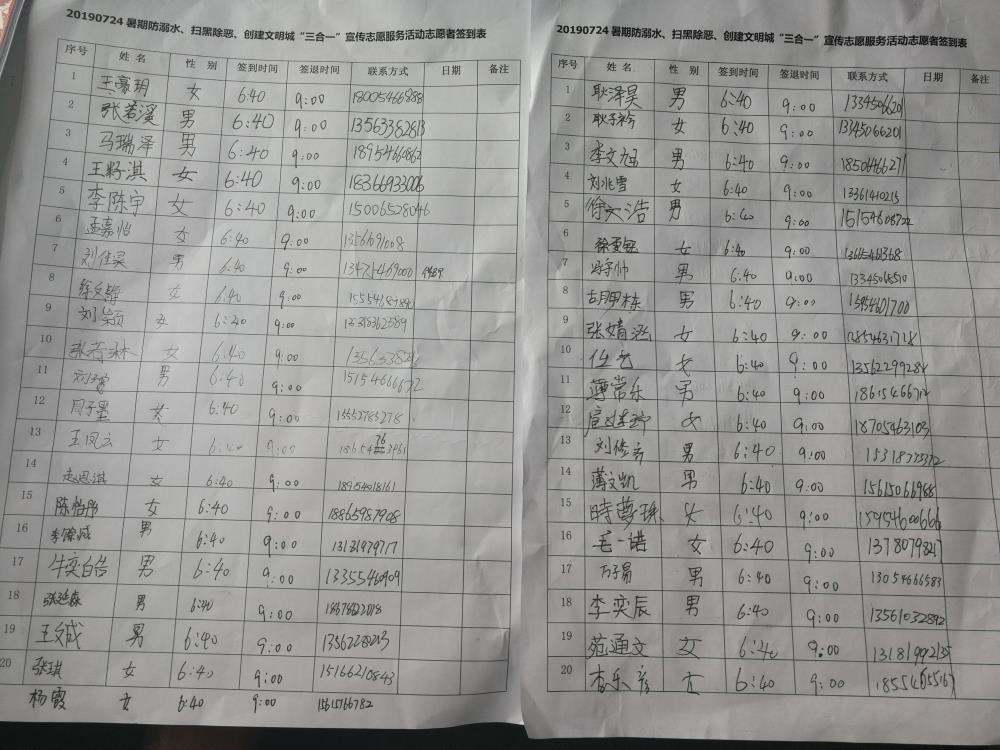 20190724 暑期防溺水、扫黑除恶、创建文明城“三合一”宣传志愿服务活动志愿者签到表
序号 姓 名 性 别 签到时间 签退时间 联系方式 日期 备注
1 王豪玥 女 6:40 9:00 18005466988
2 张若溪 男 6:40 9:00 13563362813
3 马瑞泽 男 6:40 9:00 18954660862
4 王籽淇 女 6:40 9:00 18366933006
5 李陈宇 女 6:40 9:00 15006528046
6 孟嘉怡 女 6:40 9:00 13561691008
7 男 6:40 9:00 13475469000
8 女 6:40 9:00
9 刘颖 女 6:40 9:00
10 张若琳 女 6:40 9:00
11 男 6:40 9:00 15154666672
12 周子墨 女 6:40 9:00
13 王凤云 女 6:40 9:00
14 赵思淇 女 6:40 9:00 18954018161
15 陈怡彤 女 6:40 9:00 18865987908
16 男 6:40 9:00 13131979717
17 牛奕皓 男 6:40 9:00 13355460909
18 男 6:40 9:00
19 王文成 男 6:40 9:00
20 张琪 女 6:40 9:00 15166210843
杨霞 女 6:40 9:00 15615166782
20190724 暑期防溺水、扫黑除恶、创建文明城“三合一”宣传志愿服务活动志愿者签到表
序号 姓 名 性 别 签到时间 签退时间 联系方式 日期 备注
1 耿泽昊 男 6:40 9:00 13345066201
2 耿子衿 女 6:40 9:00 13345066201
3 男 6:40 9:00 18504466271
4 刘兆雪 女 6:40 9:00 13361440215
5 男 6:40 9:00 15154608722
6 女 6:40 9:00
7 男 6:40 9:00 13345065510
8 胡甲栋 男 6:40 9:00 15954601700
9 张婧涵 女 6:40 9:00
10 任艺 女 6:40 9:00 13562299284
11 薄常乐 男 6:40 9:00
12 女 6:40 9:00 18705463103
13 刘修齐 男 6:40 9:00
14 薄文凯 男 6:40 9:00 15615066968
15 時夢珠 女 6:40 9:00 15954600666
16 毛一诺 女 6:40 9:00
17 万子易 男 6:40 9:00 13054666583
18 李奕辰 男 6:40 9:00 13561032892
19 苑通文 女 6:40 9:00 13181992135
20 李乐彦 女 6:40 9:00